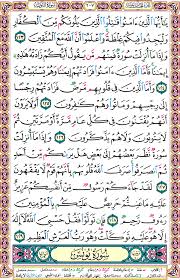 يَٰٓأَيُّهَا ٱلَّذِينَ ءَامَنُوا۟ قَٰتِلُوا۟ ٱلَّذِينَ يَلُونَكُم مِّنَ ٱلْكُفَّارِ
وَلْيَجِدُوا۟ فِيكُمْ غِلْظَةً وَٱعْلَمُوٓا۟ أَنَّ ٱللَّهَ مَعَ ٱلْمُتَّقِينَ ١٢٣
وَإِذَا مَآ أُنزِلَتْ سُورَةٌ فَمِنْهُم مَّن يَقُولُ أَيُّكُمْ زَادَتْهُ هَٰذِهِۦٓ
إِيمَٰنًا فَأَمَّا ٱلَّذِينَ ءَامَنُوا۟ فَزَادَتْهُمْ إِيمَٰنًا وَهُمْ يَسْتَبْشِرُونَ
١٢٤ وَأَمَّا ٱلَّذِينَ فِى قُلُوبِهِم مَّرَضٌ فَزَادَتْهُمْ رِجْسًا
إِلَىٰ رِجْسِهِمْ وَمَاتُوا۟ وَهُمْ كَٰفِرُونَ ١٢٥ أَوَلَا يَرَوْنَ
أَنَّهُمْ يُفْتَنُونَ فِى كُلِّ عَامٍ مَّرَّةً أَوْ مَرَّتَيْنِ ثُمَّ
لَا يَتُوبُونَ وَلَا هُمْ يَذَّكَّرُونَ ١٢٦ وَإِذَا مَآ أُنزِلَتْ
سُورَةٌ نَّظَرَ بَعْضُهُمْ إِلَىٰ بَعْضٍ هَلْ يَرَىٰكُم مِّنْ أَحَدٍ
ثُمَّ ٱنصَرَفُوا۟ صَرَفَ ٱللَّهُ قُلُوبَهُم بِأَنَّهُمْ قَوْمٌ لَّا يَفْقَهُونَ
١٢٧ لَقَدْ جَآءَكُمْ رَسُولٌ مِّنْ أَنفُسِكُمْ عَزِيزٌ
عَلَيْهِ مَا عَنِتُّمْ حَرِيصٌ عَلَيْكُم بِٱلْمُؤْمِنِينَ رَءُوفٌ
رَّحِيمٌ ١٢٨ فَإِن تَوَلَّوْا۟ فَقُلْ حَسْبِىَ ٱللَّهُ لَآ إِلَٰهَ
إِلَّا هُوَ عَلَيْهِ تَوَكَّلْتُ وَهُوَ رَبُّ ٱلْعَرْشِ ٱلْعَظِيمِ ١٢٩
سُورَةُ يُونُسَ